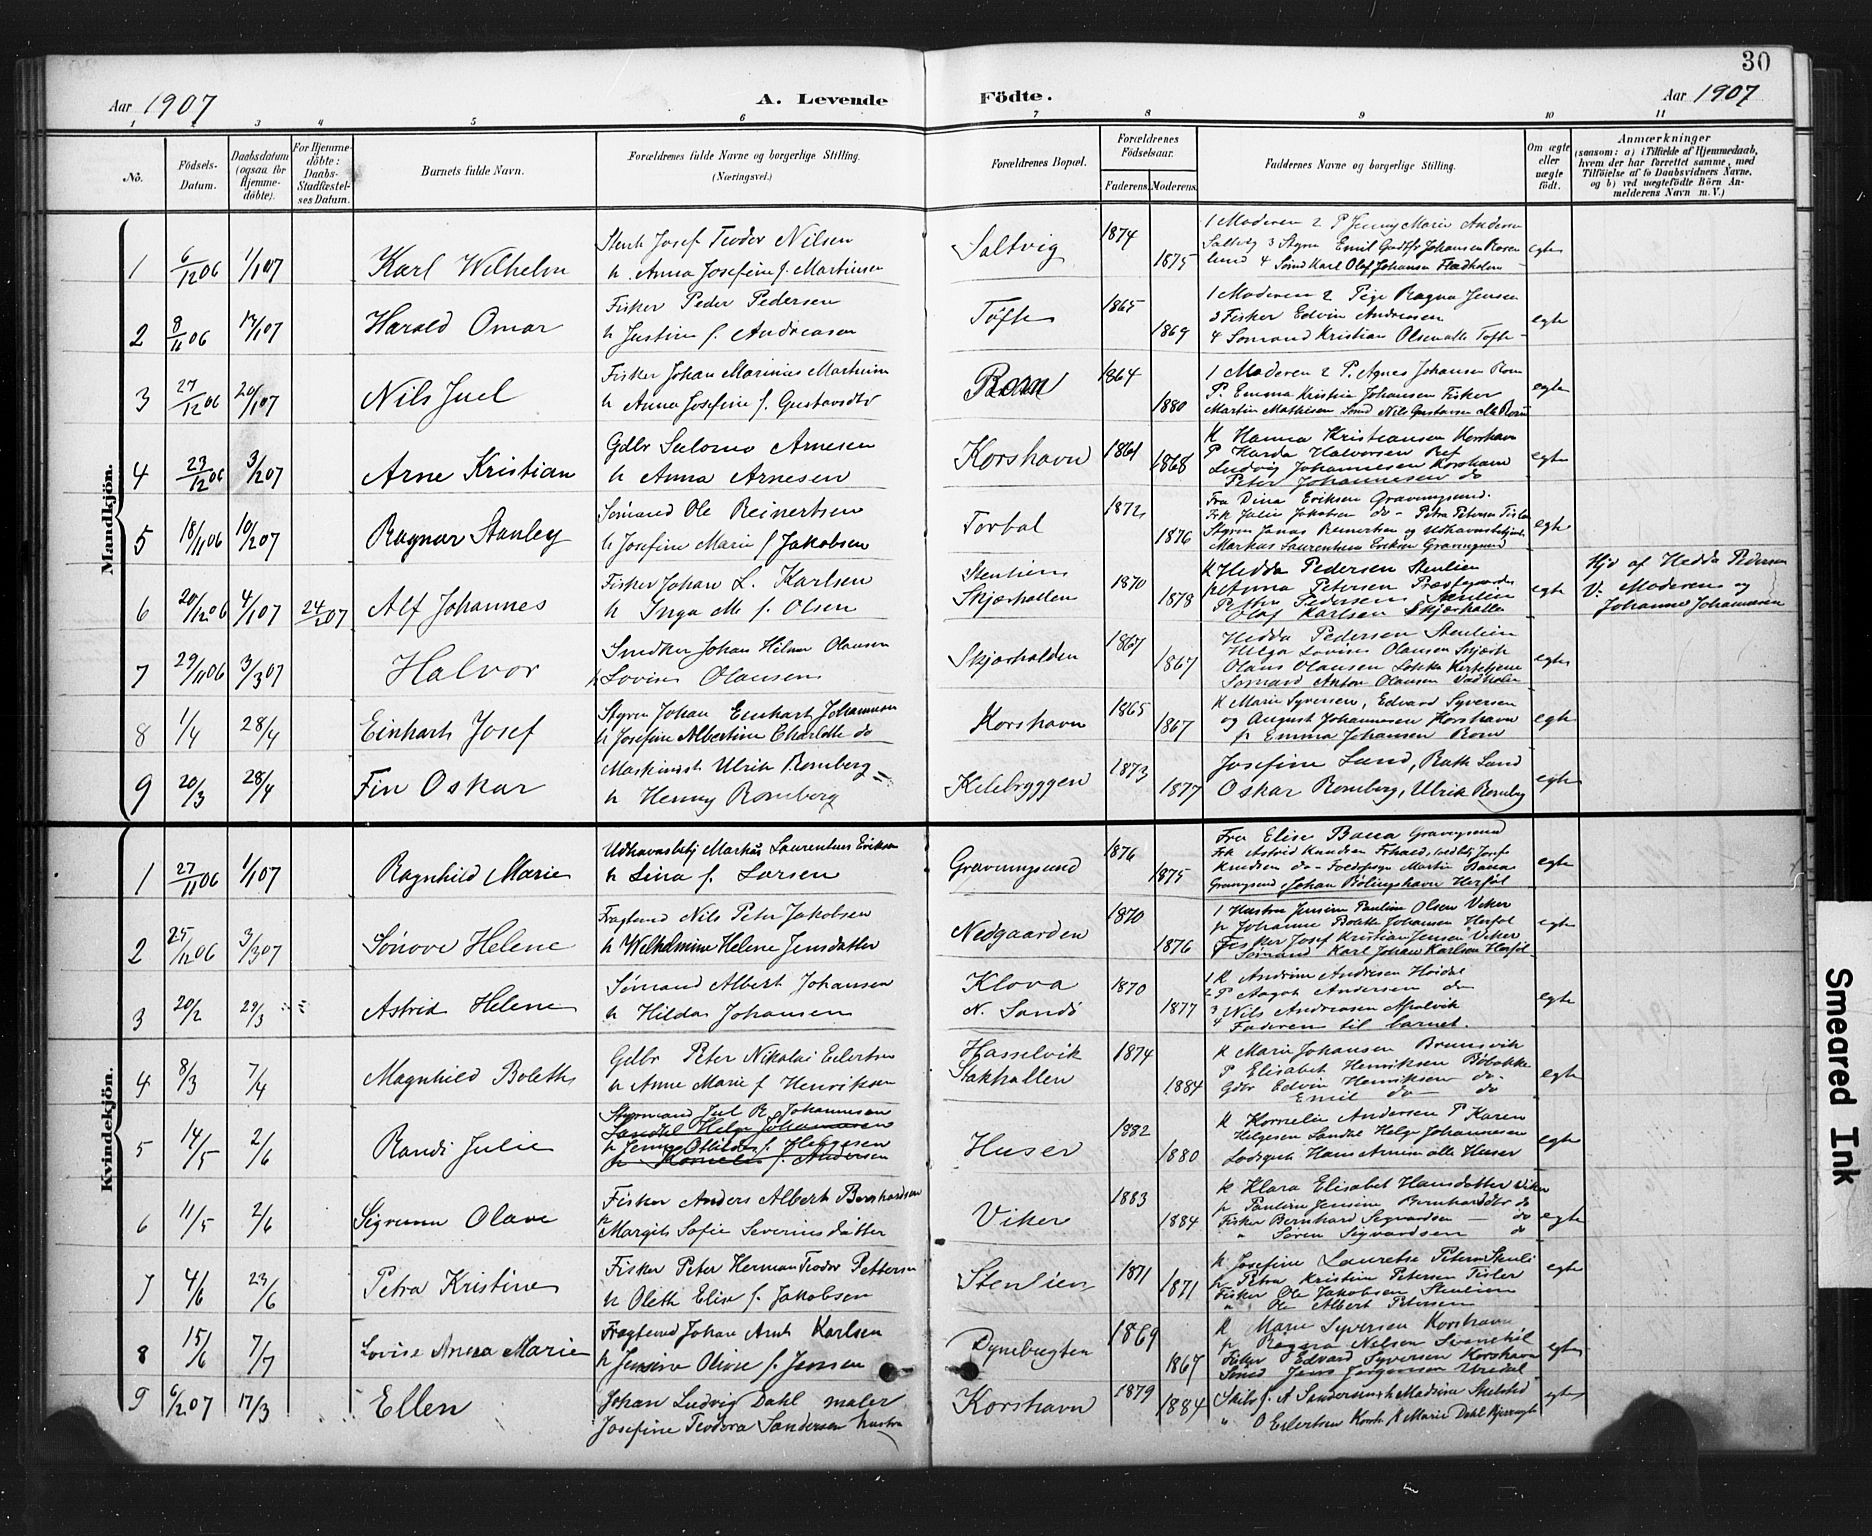 30
Aar 1907
A. Levende
Födte.
Aar 1907
1 2 3 4 5 6 7 8 9 10 11
No.
Födsels-Datum.
Daabsdatum (ogsaa for Hjemmedöbte).
For Hjemmedöbte: Daabs-Stadfæstelses Datum.
Barnets fulde Navn.
Forældrenes fulde Navne og borgerlige Stilling.
(Næringsvei.)
Forældrenes Bopæl.
Forældrenes Födselsaar.
Faderens.
Moderens.
Faddernes Navne og borgerlige Stilling.
Om ægte eller uægte födt.
Anmærkninger
(saasom: a) i Tilfælde af Hjemmedaab, hvem der har forrettet samme, med Tilföielse af to Daabsvidners Navne, og b) ved uegtefödte Börn Anmelderens Navn m. V.)
Mandkjön.
1 6/12 06 1/1 07 Karl Wilhelm
Josef Teodor Nilsen
h Anna Josefine f. Martinsen
Saltvig 1874 1875
1 Moderen 2 P Jenny Marie Andersen
4 Sömd Karl Olaf Johansen
egte
2 8/11 06 07 Harald Omar
Fisker Peder Pedersen
h Justine f. Andreasen
Tofte 1865 1869
1 Moderen 2 Pige Ragna Jensen
3 Fisker Edvin Andreasen
4 Sömand Kristian Olsen alle Tofte
egte
3 27/12 06 20/1 07 Nils Juel
Fisker Johan Marinius
h Anna Josefine f. Gustavsdtr
1864 1880
1 Moderen 2 P. Agnes Johansen
P. Emma Kristin Johansen Fisker
Martin Mathisen Sömd Nils Gustavsen
egte
4 23/12 06 3/2 07 Arne Kristian
Gdbr Salomo Arnesen
h Anna Arnesen
Korshavn 1861 1868
K Hanna Kristiansen Korshavn
P Harda Halvorsen Ref
Ludvig Johannesen Korshavn
Peter Johannesen do
egte
5 18/11 06 10/2 07 Ragnar Stanley
Sömand Ole Reinertsen
h Josefine Marie f Jakobsen
Torbal 1872 1876
Fru Dina Eriksen Gravningsund.
Frk Julie Jakobsen do - Petra Petersen
Styrm Jonas Reinertsen og
Markus Laurentius Eriksen Gravningsund
egte
6 20/12 06 4/1 07 24/2 07 Alf Johannes
Fisker Johan L. Karlsen
h Inga M. f. Olsen
Stenlien
Skjærhallen 1870 1878
K Hedda Pedersen Stenlien
Anna Petersen
Petter Pedersen Stenlien
Olaf Karlsen Skjærhallen
egte
Hjd af Hedda Pedersen
V. Moderen og
Johanne Johannesen
7 29/11 06 3/3 07 Halvor
Snedker Johan Hilmar Olausen
h Lovise Olausen
Skjærhalden 1867 1867
Hedda Pedersen Stenlien
Helga Lovise Olausen
Olaus Olausen
Sömand Anton Olausen
egte
8 1/4 28/4 Einhart Josef
Styrm Johan Einhart Johannesen
h Josefine Albertine Charlotte do
Korshavn 1865 1867
K Marie Syversen, Edvard Syversen
og August Johannesen Korshavn
p Emma Johansen
egte
9 20/3 28/4 Fin Oskar
Maskinist Ulrik Romberg
h Henny Romberg
Kilebryggen 1873 1877
Josefine Lund, Lund
Oskar Romberg, Ulrik Romberg
egte
Kvindekjön.
1 27/11 06 1/1 07 Ragnhild Marie
Markus Laurentius Eriksen
h Lina f. Larsen
Gravningsund 1876 1875
Fru Elise Bacca Gravningsund
Frk Astrid Knudsen
Knudsen do Martin Bacca
Gravngsund Johan Herföl
egte
2 25/12 06 3/3 07 Sönove Helene
Nils Peter Jakobsen
h Wilhelmine Helene Jensdatter
Nedgaarden 1870 1876
1 Hustru Jensine Pauline Olsen Viker
p Johanne Bolette Johansen Herföl
Fisker Josef Kristian Jensen Viker
Sömand Karl Johan Karlsen Herföl
egte
3 20/2 29/3 Astrid Helene
Sömand Albert Johansen
h Hilda Johansen
Klova
N. Sandö 1870 1877
1 K Andrine Andresen
2 P Aagot Andersen do
3 Nils Andreasen
4 Faderen til barnet.
egte
4 8/3 7/4 Magnhild Bolette
Gdbr Peter Nikolai Eilertsen
h Anne Marie f Henriksen
Hasselvik
Stakhallen 1874 1884
K Marie Johansen Brunsvik
P Elisabet Henriksen
Gdbr Edvin Henriksen do
Emil do do
egte
5 14/5 2/6 Randi Julie
Styrmand Jul R. Johannesen
Sandhl Helge Johannesen
h Jenny Otilde f. Helgesen
h Kornelie f. Andersen
Huser 1882 1880
K Kornelia Andersen P Karen
Helgesen Sandhl Helge Johannesen
Hans alle Huser
egte
6 11/5 2/6 Sigrunn Olave
Fisker Anders Albert Bernhardsen
h Margit Sofie Severinsdatter
Viker 1883 1884
K Klara Elisabet Hansdatter Viker
p Pauline Jensine Bernharddtr do
Fisker Bernhard Sigvardsen do
" Sören Sigvardsen do
egte
7 4/6 23/6 Petra Kristine
Fisker Peter Herman Teodor Pettersen
h Oleth Elise f. Jakobsen
Stenlien 1871 1871
K Josefine Lauretse Petersen Stenli
p Petra Kristine Petersen Tisler
Fisker Ole Jakobsen Stenlien
" Ole Albert Petersen
egte
8 15/6 7/7 Lovise Anna Marie
Johan Arnt Karlsen
h Jensine Olive f. Jensen
Dynebugten 1869 1867
K Marie Syversen Korshavn
p Ragna Nilsen
Fisker Edvard Syversen Korshavn
Sömd Jens Jörgensen Uredal
egte
9 6/2 07 17/3 Ellen
Johan Ludvig Dahl maler
Josefine Teodora Sandersen hustru
Korshavn 1879 1884
" O Eilertsen Korsh K Marie Dahl
egte
Smeared Ink